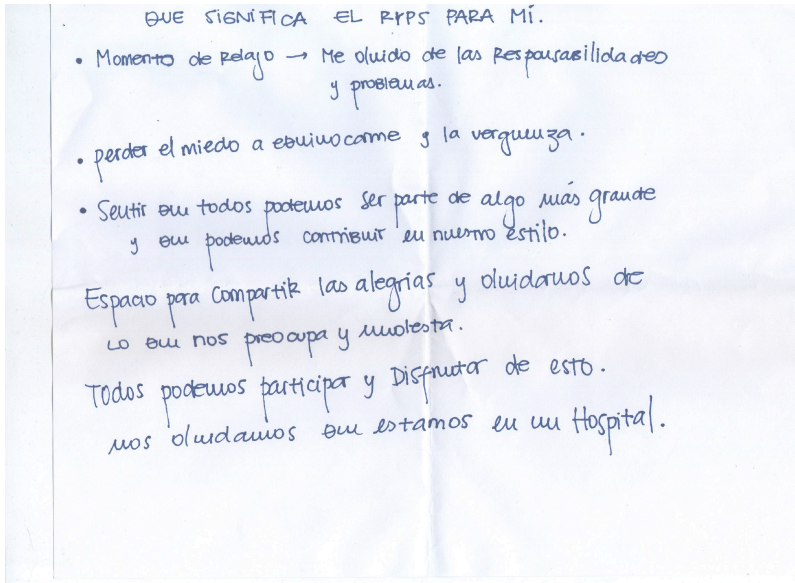 QUE SIGNIFICA EL RYPS PARA MÍ.
• Momento de Relajo → Me olvido de las Responsabilidades
y problemas.
• perder el miedo a equivocarme y la verguenza.
• Sentir que todos podemos ser parte de algo más grande
y que podemos contribuir en nuestro estilo.
Espacio para compartir las alegrías y olvidarnos de
lo que nos preocupa y molesta.
Todos podemos participar y Disfrutar de esto.
nos olvidamos que estamos en un Hospital.